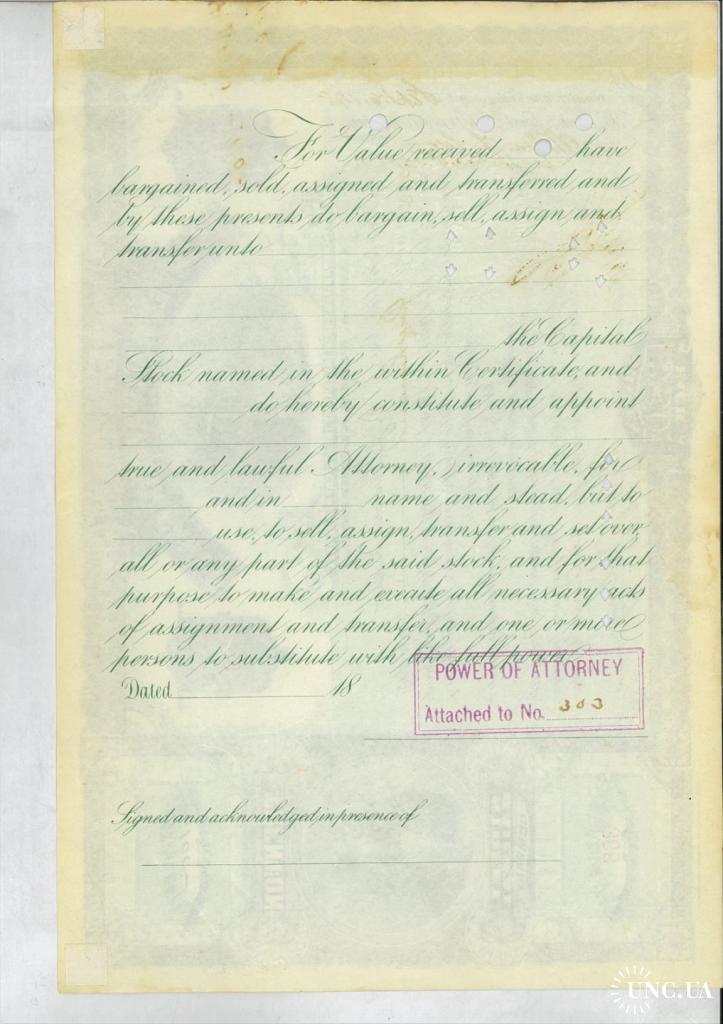 For Value received have
bargained, sold, assigned and transferred and
by these presents do bargain, sell, assign and
transfer unto
the Capital
Stock named in the within Certificate, and
do hereby constitute and appoint
true and lawful Attorney, irrevocable, for
and in name and stead, but to
use, to sell, assign, transfer and set over,
all or any part of the said stock, and for that
purpose to make and execute all necessary acts
of assignment and transfer, and one or more
persons to substitute with like full power
Dated 18
POWER OF ATTORNEY
Attached to No. 303
Signed and acknowledged in presence of
UNC.UA